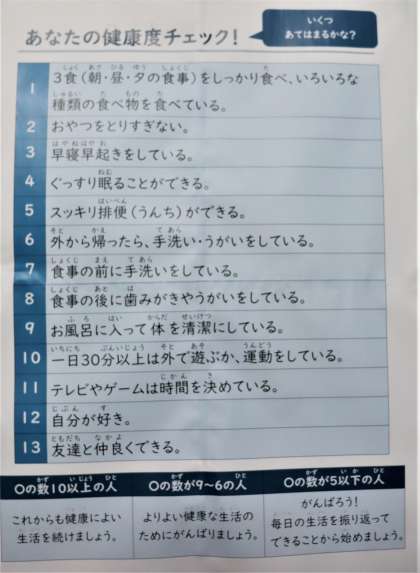 あなたの健康度チェック！
いくつ
あてはまるかな？
1 3食（朝・昼・夕の食事）をしっかり食べ、いろいろな
種類の食べ物を食べている。
2 おやつをとりすぎない。
3 早寝早起きをしている。
4 ぐっすり眠ることができる。
5 スッキリ排便（うんち）ができる。
6 外から帰ったら、手洗い・うがいをしている。
7 食事の前に手洗いをしている。
8 食事の後に歯みがきやうがいをしている。
9 お風呂に入って体を清潔にしている。
10 一日30分以上は外で遊ぶか、運動をしている。
11 テレビやゲームは時間を決めている。
12 自分が好き。
13 友達と仲良くできる。
〇の数10以上の人
〇の数が9～6の人
〇の数が5以下の人
これからも健康によい
生活を続けましょう。
よりよい健康な生活の
ためにがんばりましょう。
がんばろう！
毎日の生活を振り返って
できることから始めましょう。